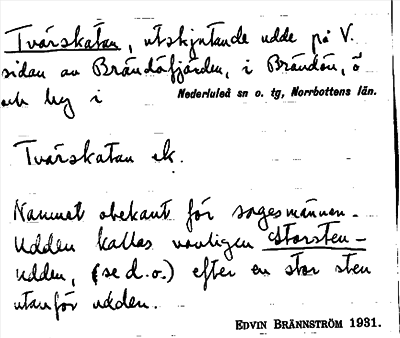 Tvärskatan, utskjutande udde på V.
sidan av Brändöfjärden, i Brändön, ö
och by i Nederluleå sn o. tg, Norrbottens län.
Tvärskatan ek.
Namnet obekant för sagesmännen.
Udden kallas vanligen Storsten-
udden, (se d.o.) efter en stor sten
utanför udden.
EDVIN BRÄNNSTRÖM 1931.